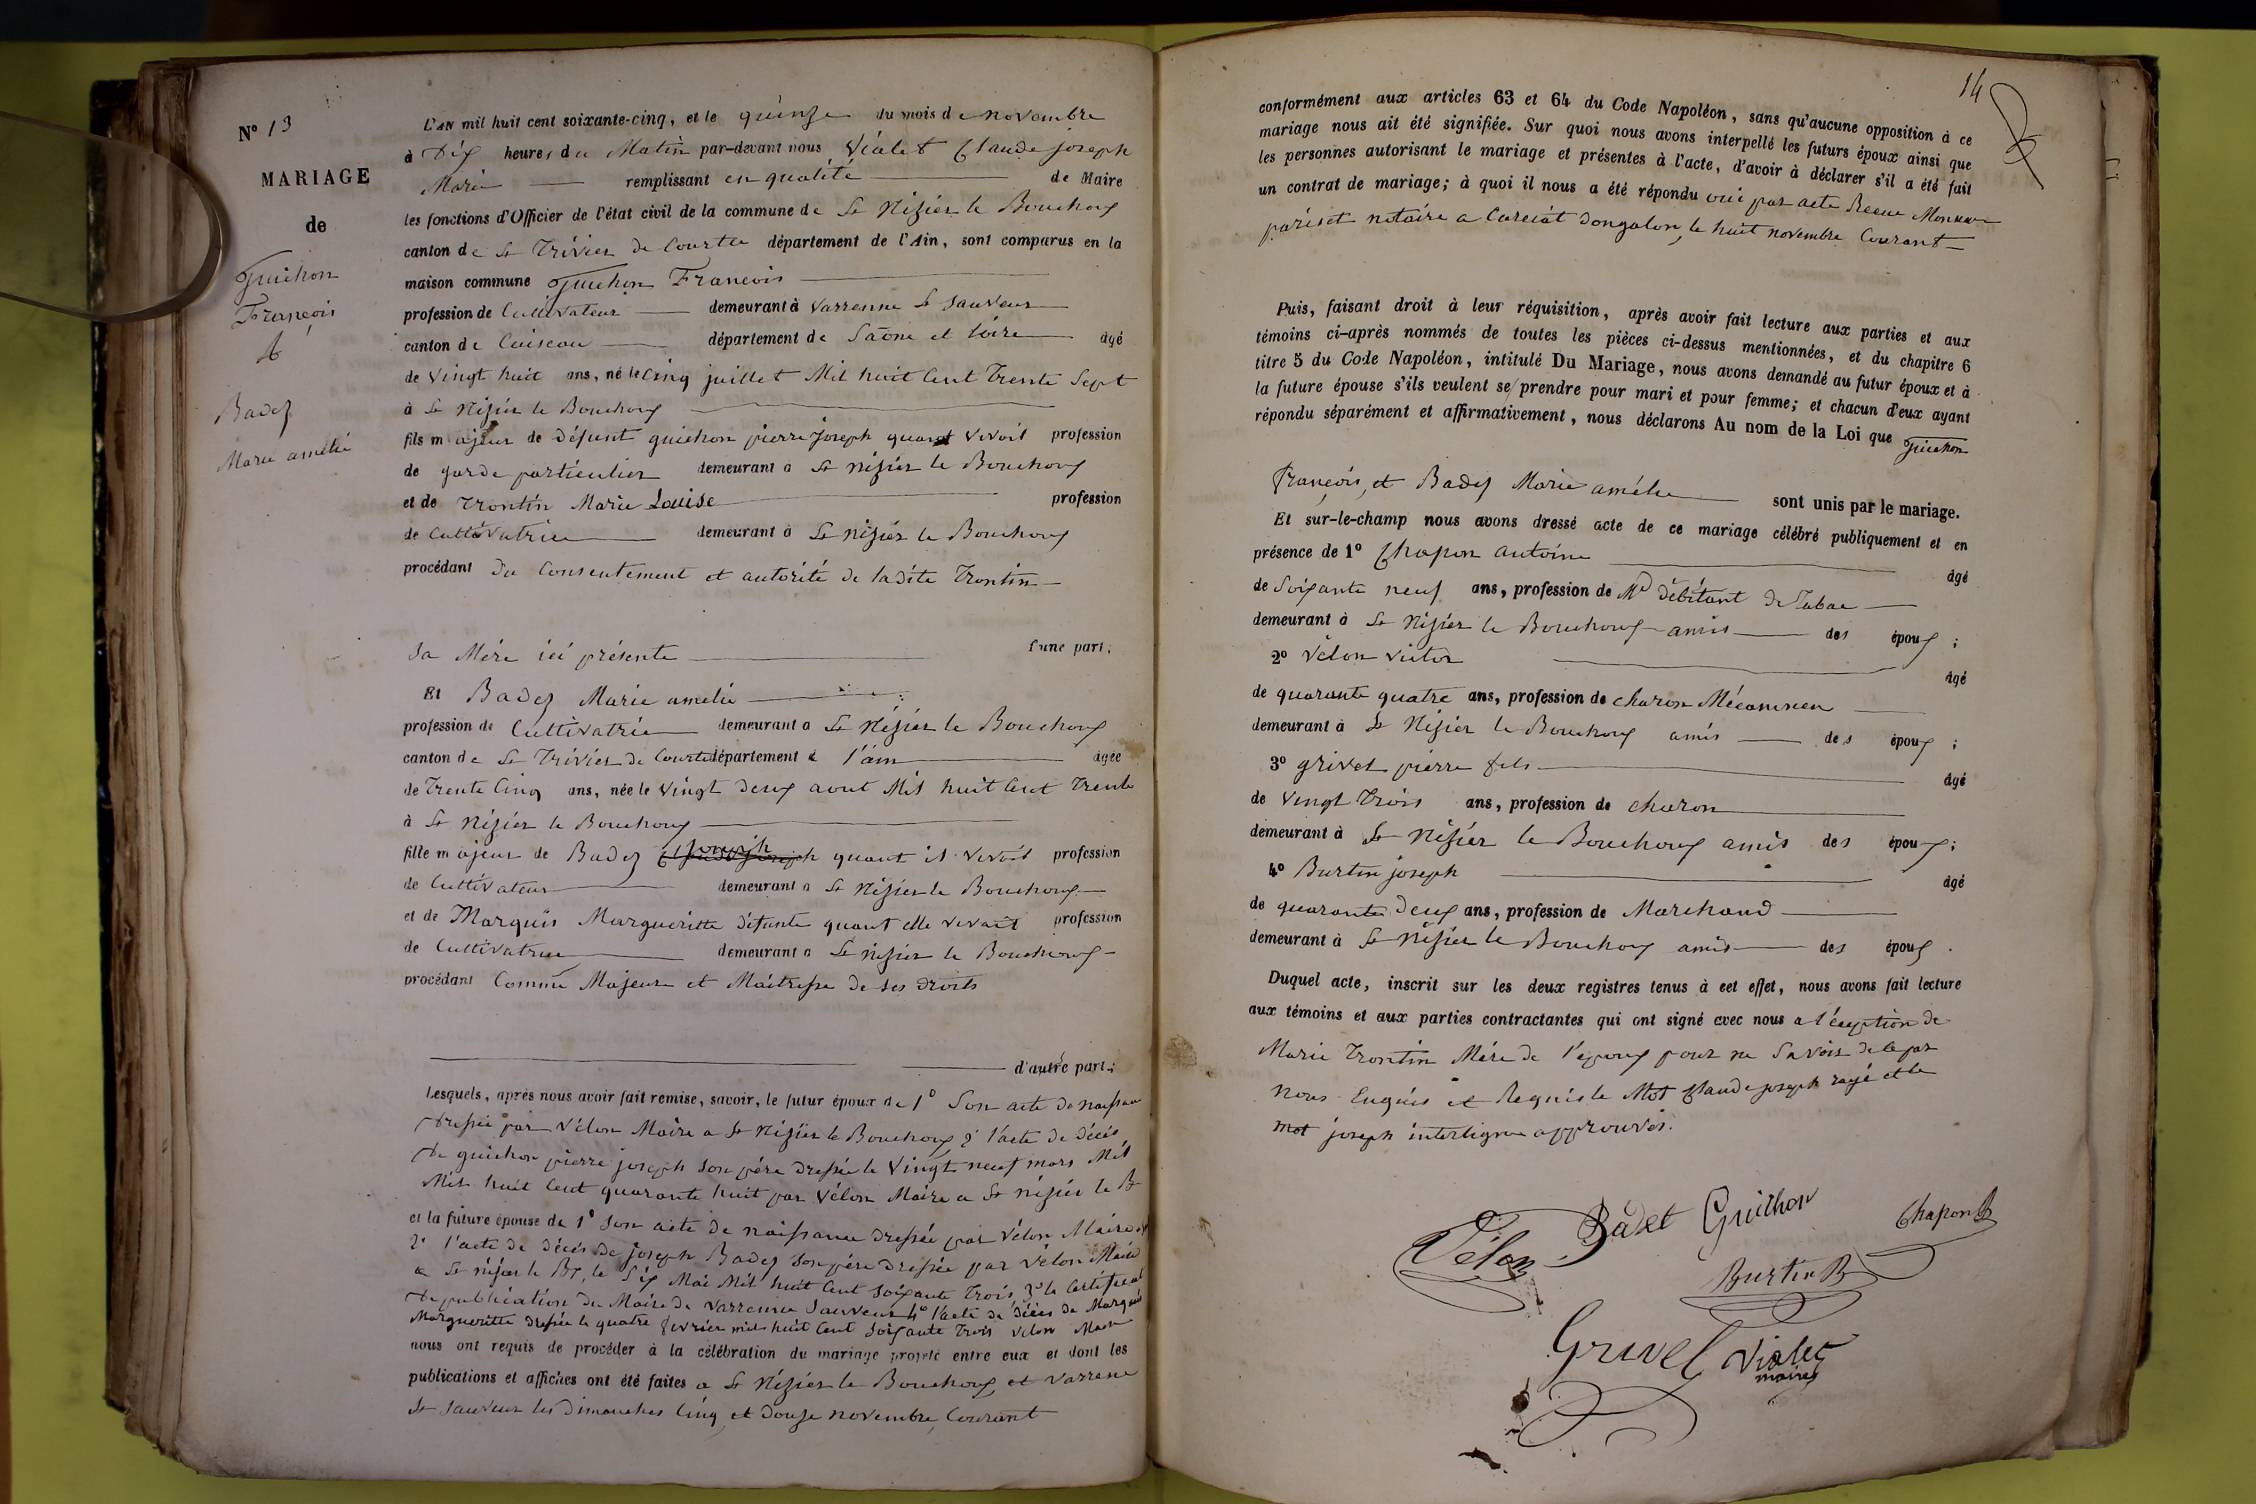 N° 13
MARIAGE
de
Guichon
François
&
Badez
Marie amélie
L'AN mil huit cent soixante-cinq, et le quinze du mois de novembre
à Dix heures du Matin par-devant nous Violet Claude joseph
Marie remplissant en qualité de Maire
les fonctions d'Officier de l'état civil de la commune de St Nizier le Bouchoux
canton de St Trivier de Courtes département de l'Ain, sont comparus en la
maison commune Guichon François
profession de Cultivateur demeurant à Varrenne St Sauveur
canton de Cuiseau département de Saône et Loire âgé
de Vingt huit ans, né le Cinq juillet Mil huit Cent Trente Sept
à St Nizier le Bouchoux
fils majeur de Défunt guichon pierre joseph quant vivoit profession
de garde particulier demeurant à St nizier le Bouchoux
et de Trontin Marie Louise profession
de Cultivatrice demeurant à St nizier le Bouchoux
procédant Du Consentement et autorité de ladite Trontin
Sa Mère ici présente d'une part;
Et Badez Marie amelie
profession de Cultivatrice demeurant à St Nizier le Bouchoux
canton de St Trivier de Courtes département de l'ain âgée
de Trente Cinq ans, née le Vingt Deux aout Mil huit Cent Trente
à St Nizier le Bouchoux
fille majeur de Badez Claude joseph joseph quant il vivoit profession
de Cultivateur demeurant à St Nizier le Bouchoux
et de Marquis Margueritte défunte quant elle vivait profession
de Cultivatrice demeurant à St nizier le Bouchoux
procédant Comme Majeure et Maitresse de ses droits
d'autre part;
Lesquels, après nous avoir fait remise, savoir, le futur époux de 1° Son acte de naissance
Dressée par Vélon Maire a St Nizier le Bouchoux 2° l'acte de décès
De guichon pierre joseph son père dressée le Vingt neuf mars Mil
Mil huit Cent quarante huit par Vélon Maire a St nizier le B
et la future épouse de 1° Son acte de naissance dressée par Vélon Maire
2° l'acte de décès de joseph Badez son père dressée par Vélon Maire
a St nizier le Bx, le Six Mai Mil huit Cent Soixante Trois 3° le Certificat
De publication du Maire de Varrenne Sauveur 4° l'acte de décès de Marquis
Margueritte dressée le quatre fevrier mil huit Cent Soixante Trois Vélon Maire
nous ont requis de procéder à la célébration du mariage projeté entre eux et dont les
publications et affiches ont été faites a St Nizier le Bouchoux et Varrene
St Sauveur les Dimanches Cinq et Douze novembre, Courant
14
conformément aux articles 63 et 64 du Code Napoléon, sans qu'aucune opposition à ce
mariage nous ait été signifiée. Sur quoi nous avons interpellé les futurs époux ainsi que
les personnes autorisant le mariage et présentes à l'acte, d'avoir à déclarer s'il a été fait
un contrat de mariage; à quoi il nous a été répondu oui par acte Recue
pariset notaire a Curciat Dongalon, le huit novembre Courant
Puis, faisant droit à leur réquisition, après avoir fait lecture aux parties et aux
témoins ci-après nommés de toutes les pièces ci-dessus mentionnées, et du chapitre 6
titre 5 du Code Napoléon, intitulé Du Mariage, nous avons demandé au futur époux et à
la future épouse s'ils veulent se prendre pour mari et pour femme; et chacun d'eux ayant
répondu séparément et affirmativement, nous déclarons Au nom de la Loi que Guichon
François, et Badez Marie amélie sont unis par le mariage.
Et sur-le-champ nous avons dressé acte de ce mariage célébré publiquement et en
présence de 1° Chapon antoine âgé
de Soixante neuf ans, profession de Md débitant De Tabac
demeurant à St Nizier le Bouchoux amis des époux;
2° Vélon Victor âgé
de quarante quatre ans, profession de charon Mécannicien
demeurant à St Nizier le Bouchoux amis des époux;
3° grivel pierre fils âgé
de Vingt Trois ans, profession de charon
demeurant à St Nizier le Bouchoux amis des époux;
4° Burtin joseph âgé
de quarante Deux ans, profession de Marchand
demeurant à St Nizier le Bouchoux amis des époux.
Duquel acte, inscrit sur les deux registres tenus à cet effet, nous avons fait lecture
aux témoins et aux parties contractantes qui ont signé avec nous a l'éxeption de
Marie Trontin Mère de l'époux pour ne Savoir de le par
nous Enquis et Requis le Mot Claude joseph rayé et le
mot joseph interligne approuvés.
Vélon Badet Guichon Chapon
Burtin
Grivel Violet
maire